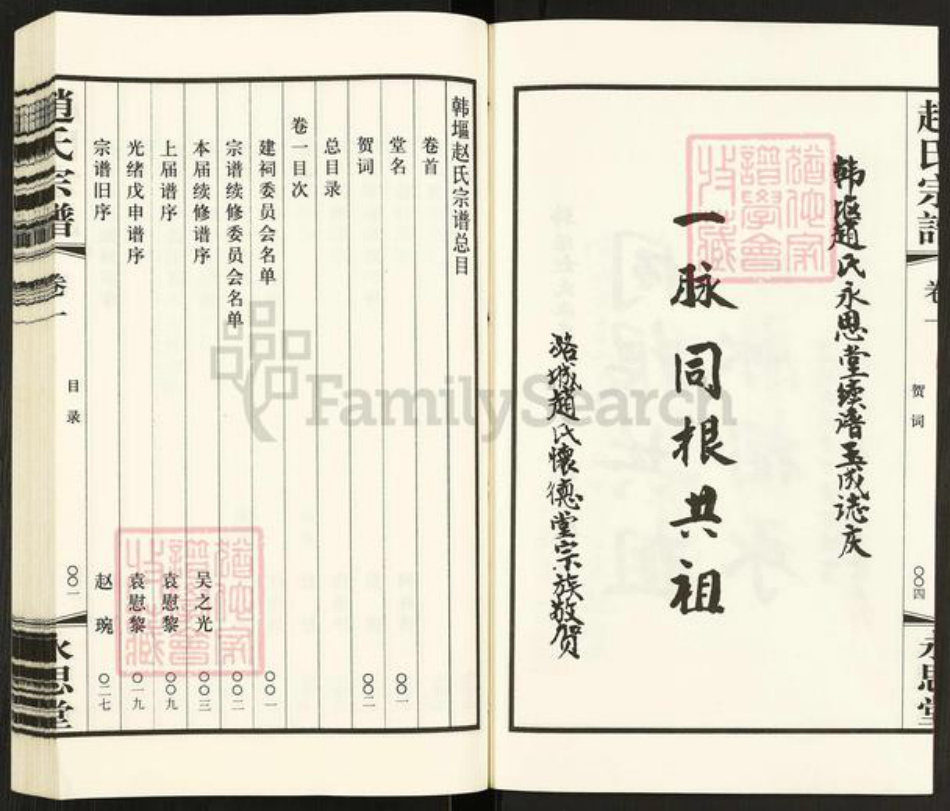 趙氏宗譜
卷一
贺词
〇〇四
永思堂
韩堰趙氏永思堂續譜玉成誌庆
一脉同根共祖
潞城趙氏懷德堂宗族敬贺
猶他家譜學會收藏
韩堰赵氏宗谱总目
卷首
堂名 〇〇一
贺词 〇〇二
总目录
卷一目次
建祠委员会名单 〇〇一
宗谱续修委员会名单 〇〇二
本届续修谱序 吴之光 〇〇三
上届谱序 袁慰黎 〇〇九
光绪戊申谱序 袁慰黎 〇一九
宗谱旧序 赵琬 〇二七
猶他家譜學會收藏
趙氏宗譜
卷一
目录
〇〇一
永思堂
FamilySearch